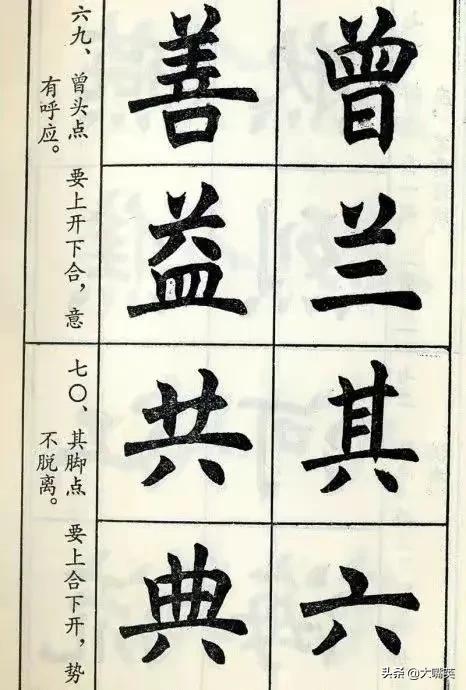 曾兰其六
善益共典
六九、曾头点 要上开下合，意
有呼应。
七〇、其脚点 要上合下开，势
不脱离。
头条 @大嘴芙